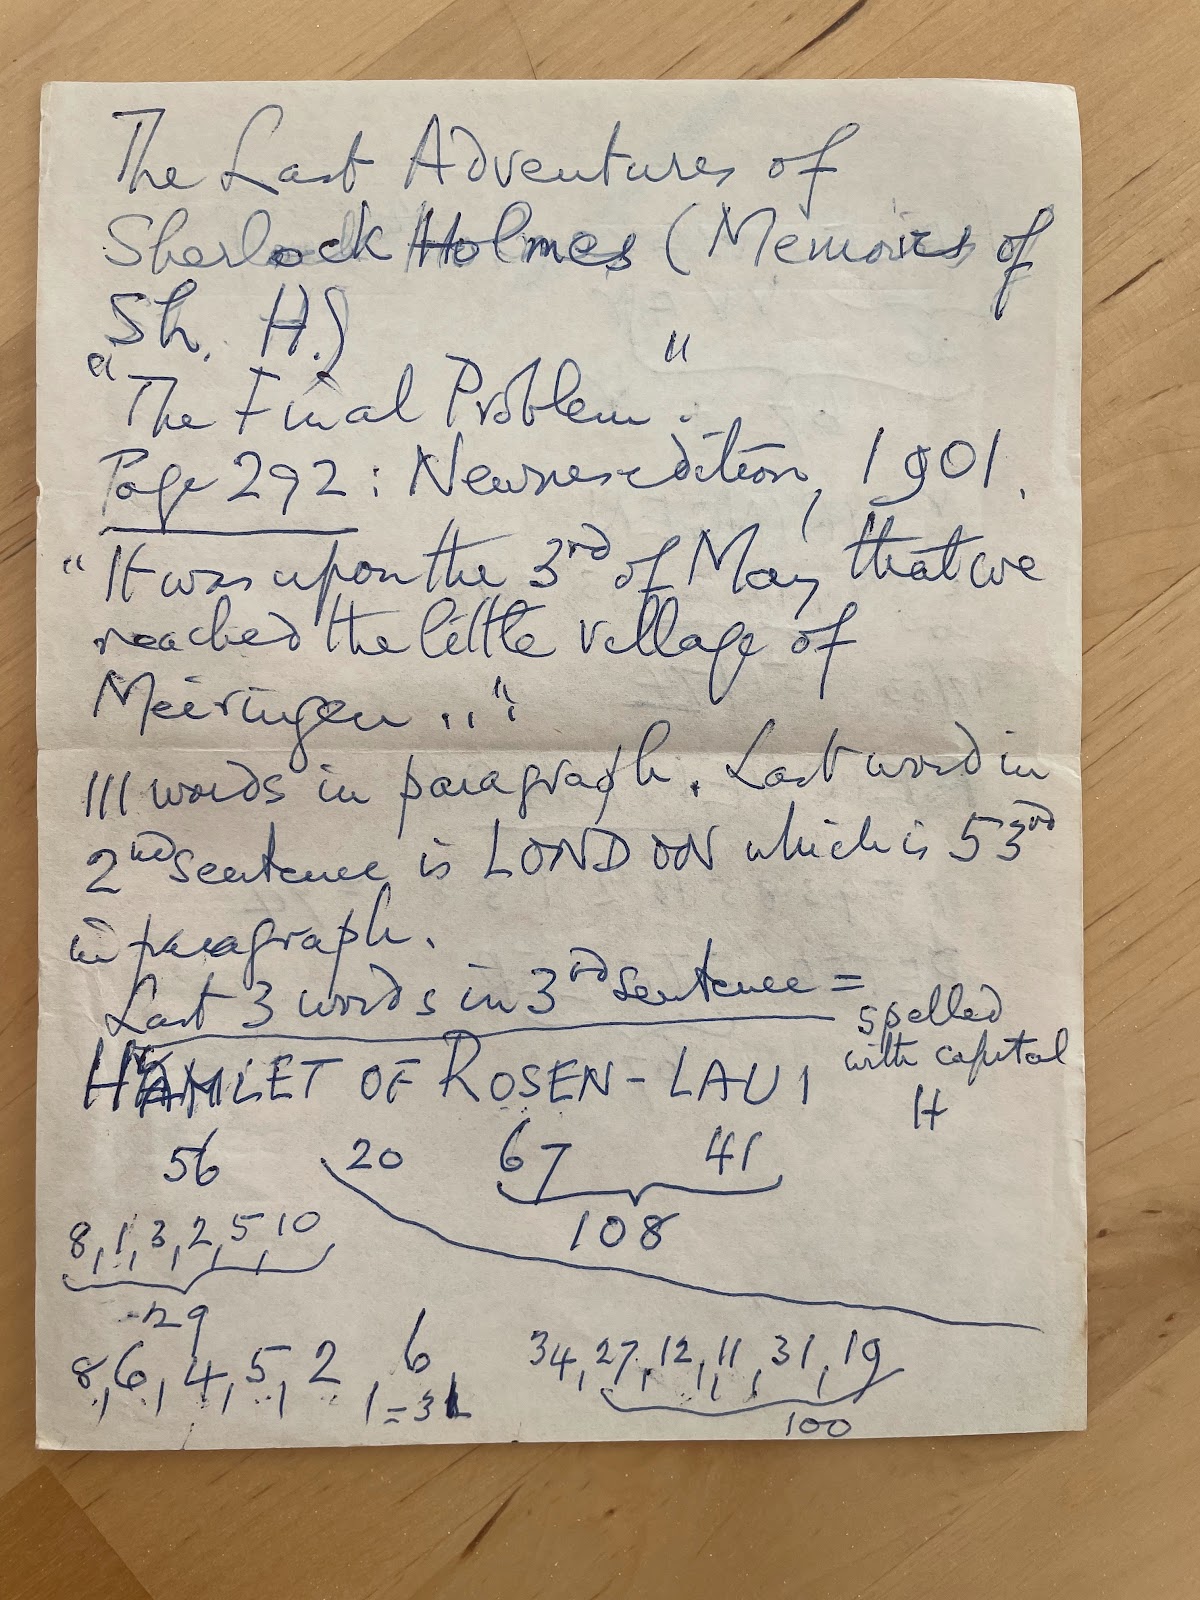 The Last Adventures of
Sherlock Holmes (Memoirs of
Sh. H.)
"The Final Problem".
Page 292: Newnes edition, 1901.
"It was upon the 3rd of May that we
reached the little village of
Meiringen ..."
111 words in paragraph. Last word in
2nd sentence is LONDON which is 53rd
in paragraph.
Last 3 words in 3rd sentence =
HAMLET OF ROSEN-LAUI
spelled
with capital
H
56 20 67 41
108
8, 1, 3, 2, 5, 10
29
8, 6, 4, 5, 2, 6, = 31
34, 27, 12, 11, 31, 19
100